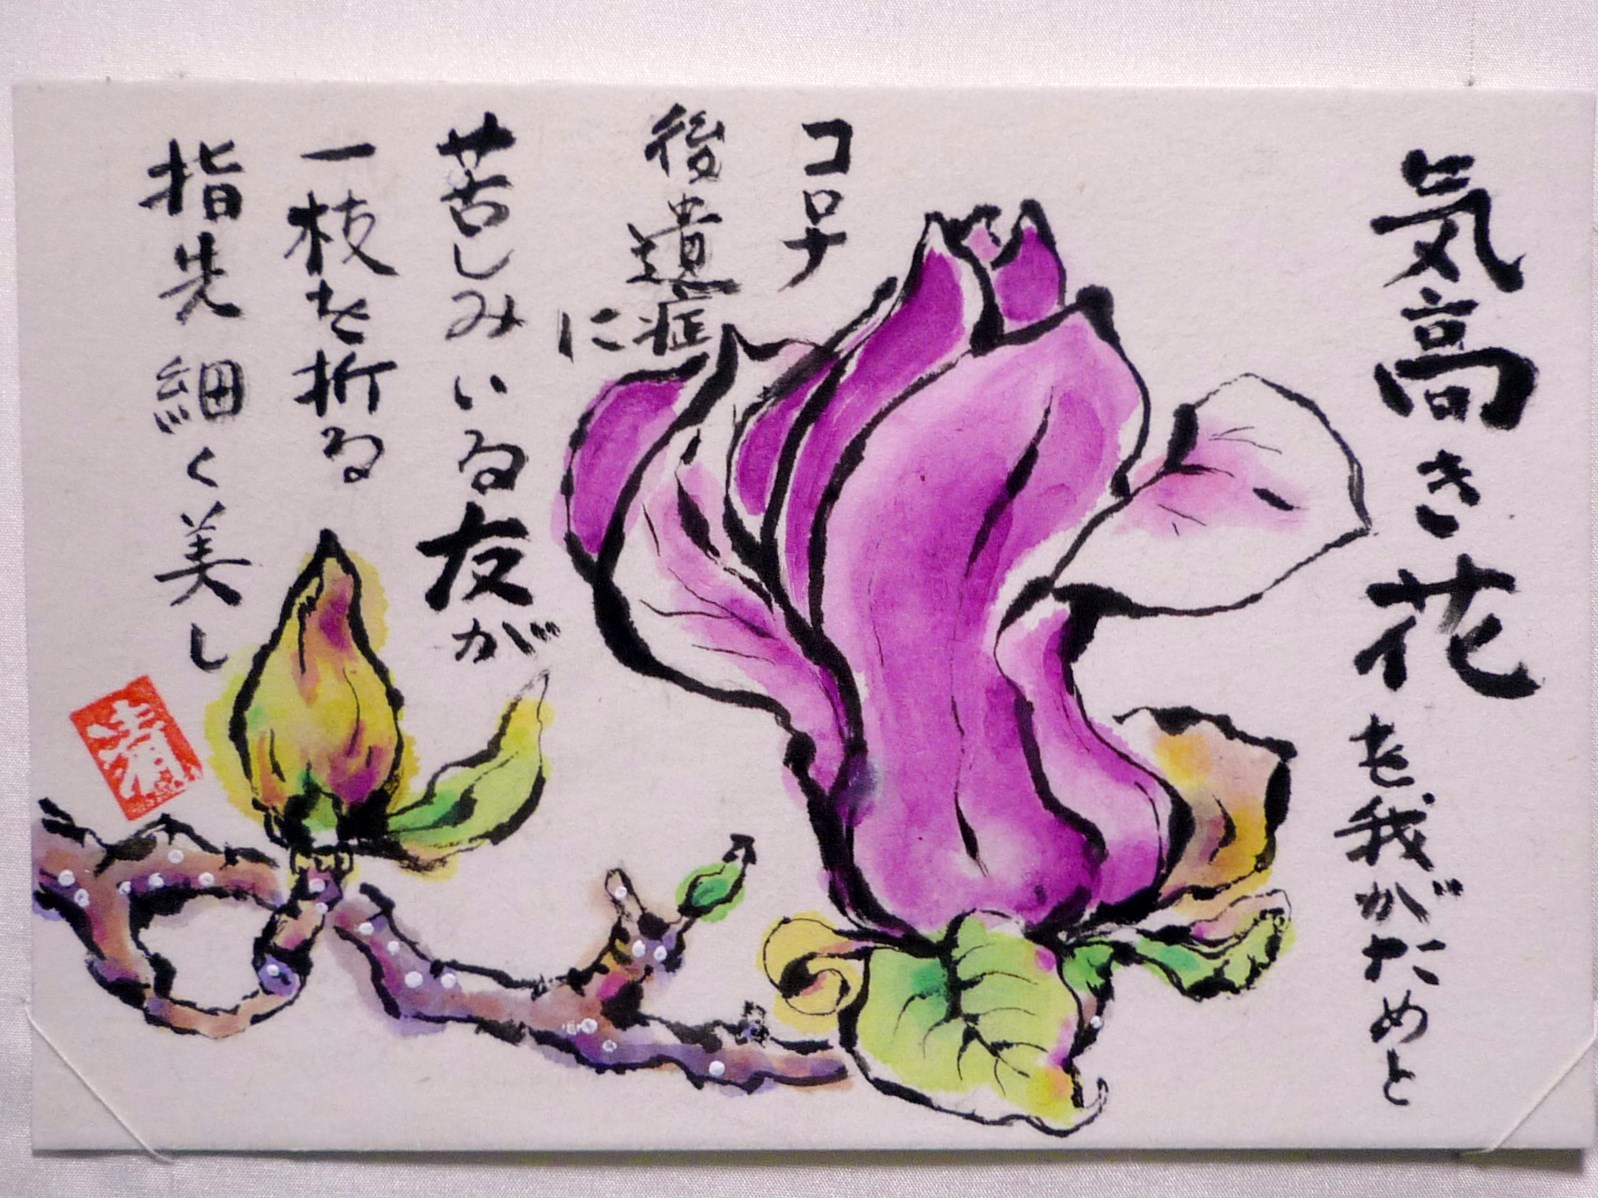 気高き花を我がためと
コロナ
後遺症に
苦しみいる友が
一枝を折る
指先細く美し
清